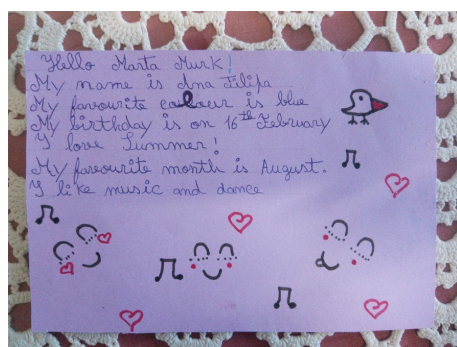 Hello Marta Murk!
My name is Ana Filipa
My favourite colour is blue
My birthday is on 16th February
I love Summer!
My favourite month is August.
I like music and dance